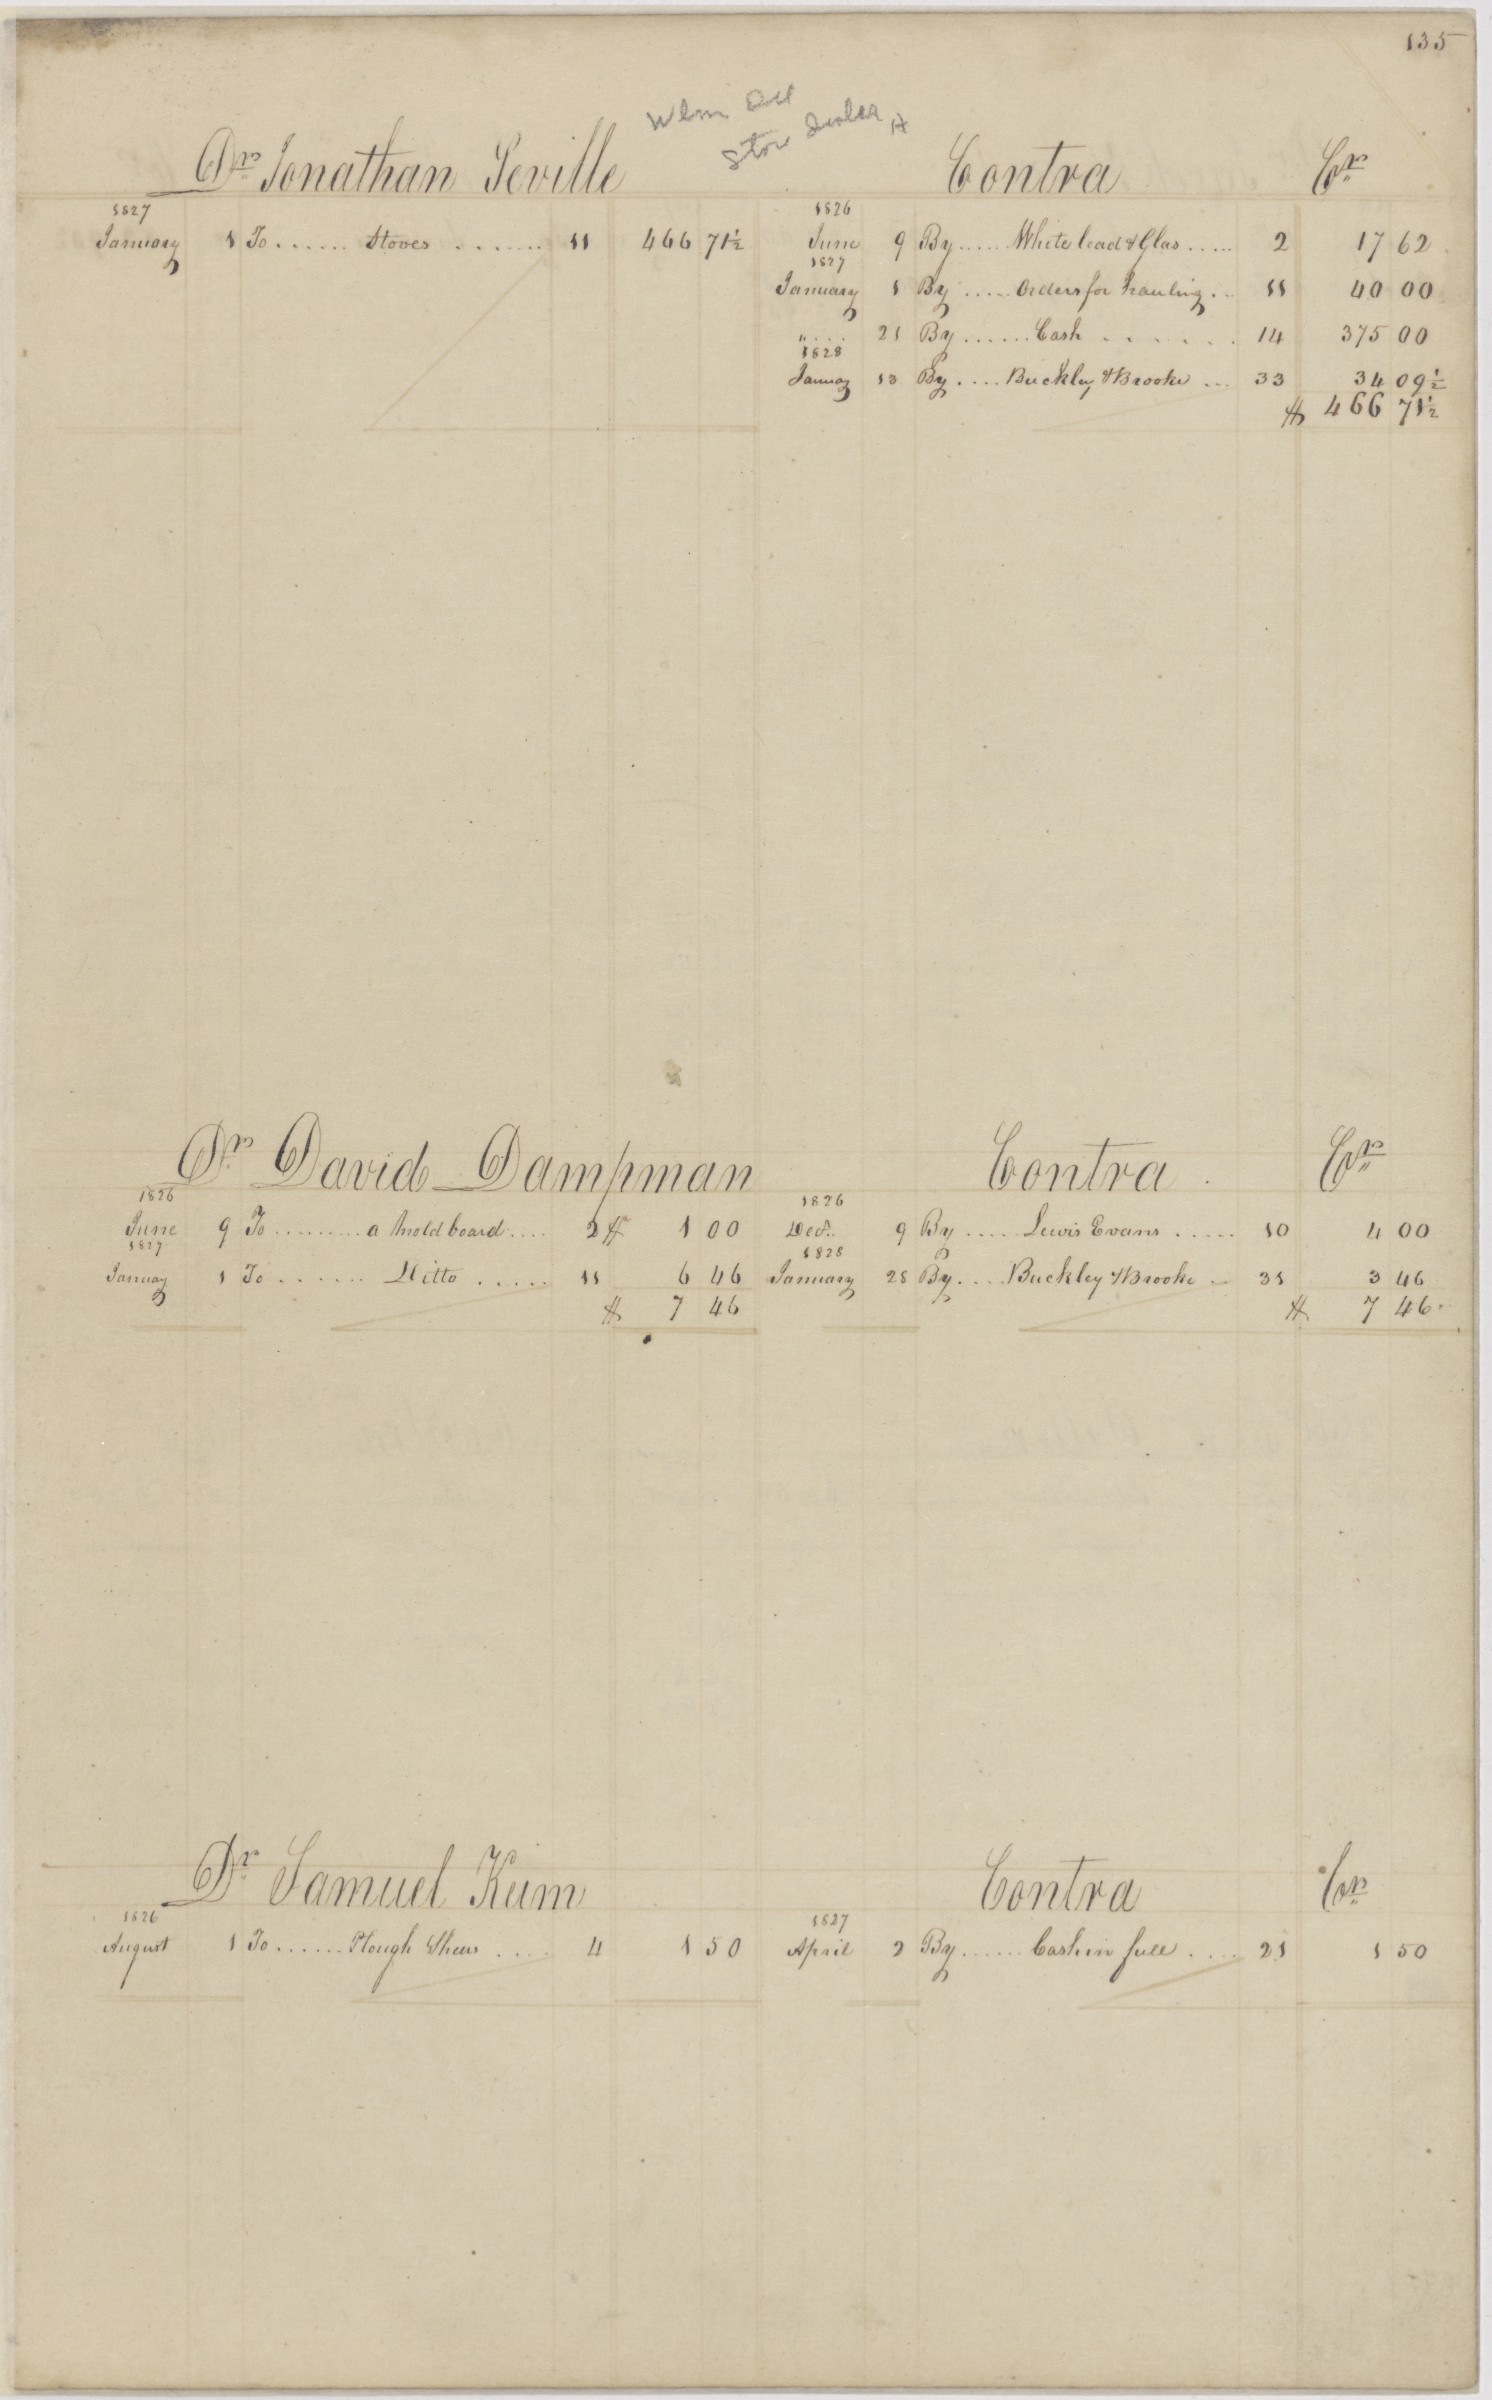 135
Wlm
Stov Dealer
Dr Jonathan Seville Contra Cr
1827 1826
January 1 To ...... Stoves ....... 11 466 71½ June 9 By ..... White lead & Glas ..... 2 17 62
1827
January 1 By ..... Orders for hauling .. 11 40 00
" .... 21 By ...... Cash ...... 14 375 00
1828
Januay 13 By .... Buckley & Brooke ... 33 34 09½
$ 466 71½
Dr David Dampman Contra Cr
1826 1826
June 9 To ......... a Moldboard .... 2 $ 1 00 Decr. 9 By ..... Lewis Evans ..... 10 4 00
1827 1828
Januay 1 To ....... Ditto ..... 11 6 46 January 28 By .... Buckley & Brooke .. 35 3 46
$ 7 46 $ 7 46
Dr Samuel Keim Contra Cr
1826 1827
August 1 To ...... Plough Shear .... 4 1 50 April 2 By ...... Cash in full .... 21 1 50